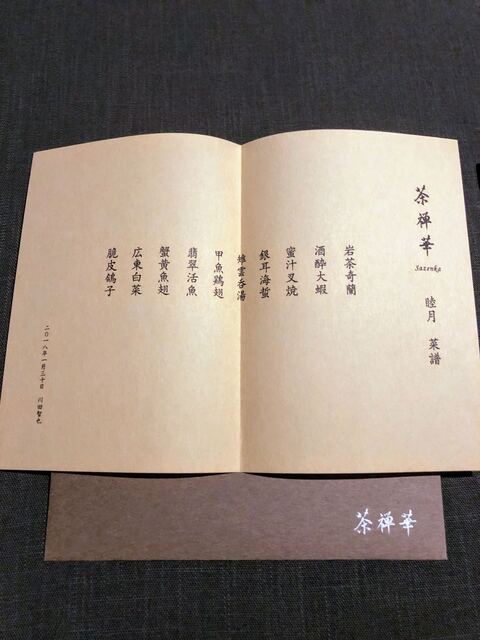 茶禅華
Sazenka
睦月 菜譜
岩茶奇蘭
酒酔大蝦
蜜汁叉焼
銀耳海蜇
雉雲呑湯
甲魚鶏翅
翡翠活魚
蟹黄魚翅
広東白菜
脆皮鴿子
二〇一八年一月三十日 川田智也
茶禅華